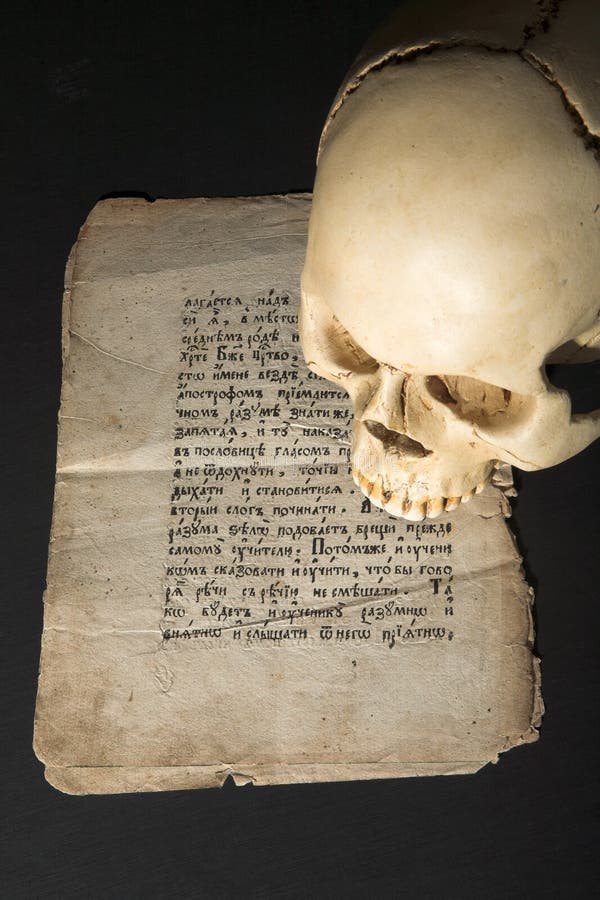 лага́ется на́дъ
се́й ꙗ҆̀, в мѣ́стѡ
сре́днемъ ро́дѣ и
Хрⷭ҇те́ Бж҃е Цр҃тво,
стѡ и҆́мене вездѣ̀
а҆построфомъ прїе́млитсѧ
чномъ ра́зумѣ зна́ти же,
запѧта́ѧ, и҆ тꙋ̀ наказа
въ посло́вицѣ гла́сомъ пр
а҆ не ѿдохнꙋ́ти, то́чїи
дыха́ти и҆ станови́тисѧ.
вторы́й сло́гъ почина́ти.
ра́зума ѕѣлѡ̀ подоба́етъ брещѝ пре́жде
самомꙋ̀ ᲂу҆чи́телю. Пото́мъже и҆ ᲂу҆ченн
кѡмъ сказовати и҆ ᲂу҆чи́ти, что́ бы гово
рѧ̀ рѣ́чи съ рѣ́чїю не смѣша́ти. Та́
кѡ бꙋ́детъ и҆ ᲂу҆ченикꙋ̀ разꙋ́мнѡ и
внѧ́тнѡ и҆ слы́шати ѿ негѡ̀ прїѧ́тнѡ.